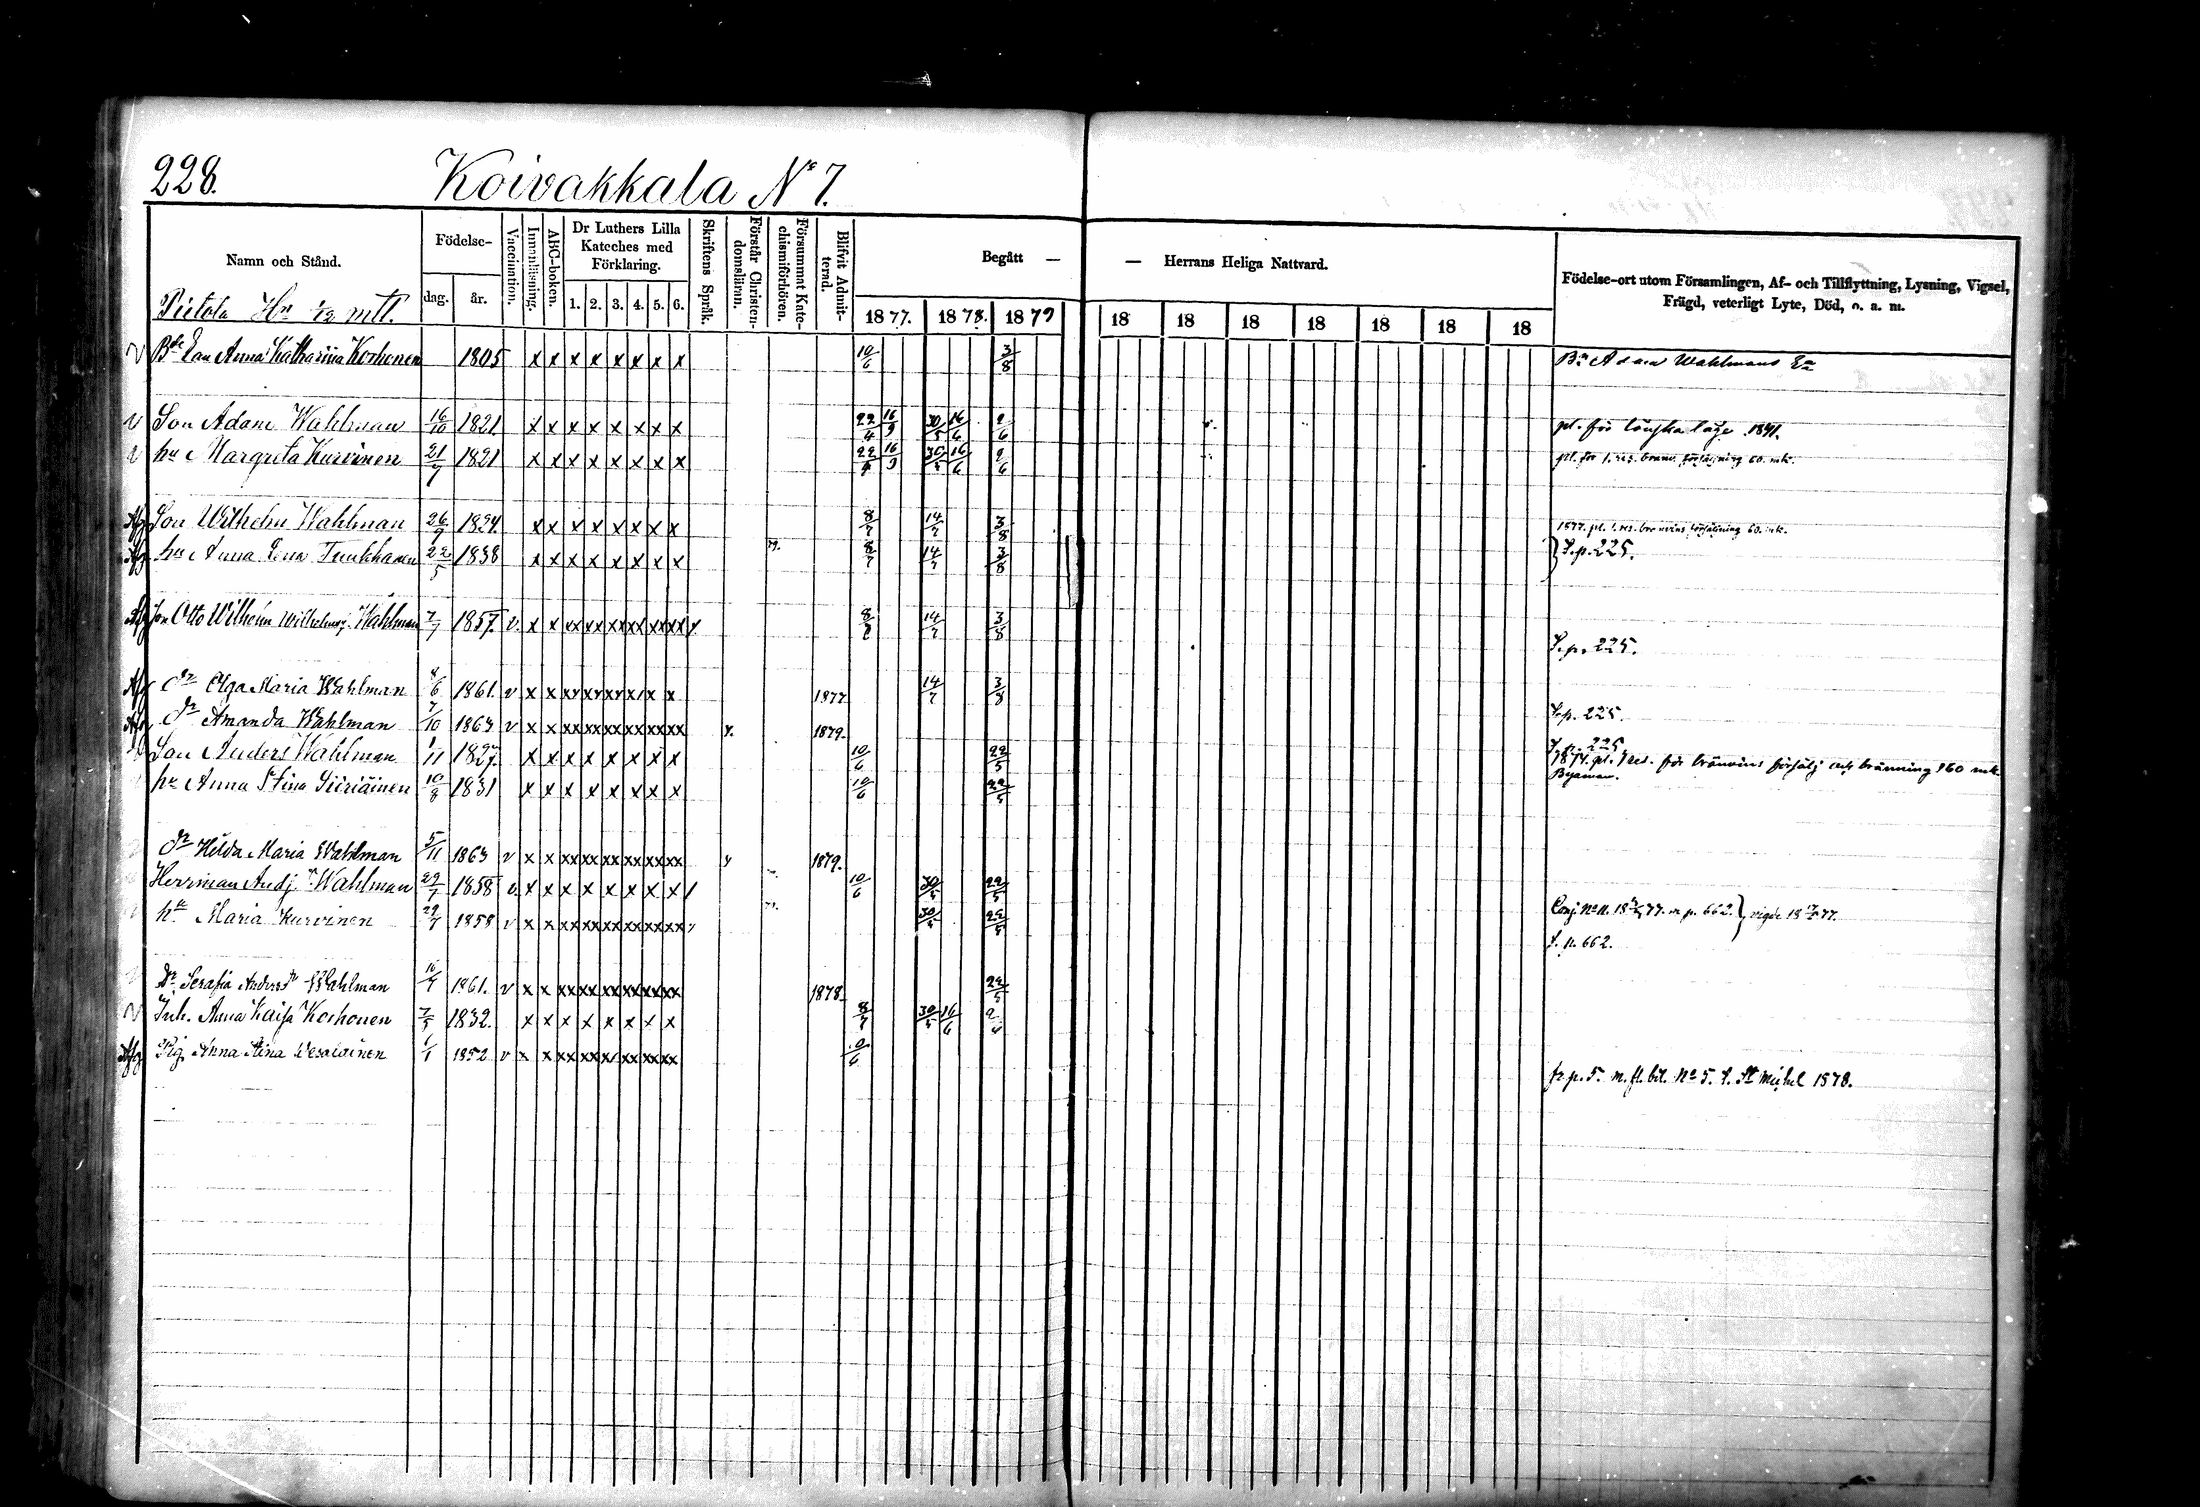 228. Koivakkala No 7.
Namn och Stånd.
Födelse-
dag. år.
Vaccination.
Innanläsning.
ABC-boken.
Dr Luthers Lilla Kateches med Förklaring.
1. 2. 3. 4. 5. 6.
Skriftens Språk.
Förstår Christendomsläran.
Försummat Katechismiförhören.
Blifvit Admitterad.
Begått — — Herrans Heliga Nattvard.
1877. 1878. 1879 18 18 18 18 18 18 18
Födelse-ort utom Församlingen, Af- och Tillflyttning, Lysning, Vigsel,
Frägd, veterligt Lyte, Död, o. a. m.
Pietola Hn 1/2 mtl.
Anna Katharina Korhonen 1805 x x x x x x x x 10/6 3/8 Adam Wahlmans
v Son Adam Wahlman 16/10 1821 x x x x x x x x 22/4 16/9 30/5 16/6 2/6 pl. för 1841.
v hu Margreta Kurvinen 21/7 1821 x x x x x x x x 22/4 16/9 30/5 16/6 2/6 pl. för 1. res. bränv. försäljning 60 mk.
Afg Son Wilhelm Wahlman 26/9 1834 x x x x x x x x 8/7 14/7 3/8 1877. pl. 1. res. försäljning 60 mk.
Afg hu Anna Lena 22/5 1838 x x x x x x x x 8/7 14/7 3/8 S. p. 225.
Afg Son Otto Wilhelm Wilhelmsj. Wahlman 7/7 1857. v. x x xx xx xx xx xx xx 14/7 3/8
S. p. 225.
Afg Dr Olga Maria Wahlman 8/6 1861. v x x 1877 14/7 3/8
S. p. 225.
Afg Dr Amanda Wahlman 7/10 1863 v x x xx xx xx xx xx xx 1879.
S. p. 225
Son Anders Wahlman 1/11 1827. x x x x x x x x 10/6 22/5 1874. pl. 1 res. för bränvins försälj och bränning 160 mk
hu Anna Stina Siiriäinen 10/8 1831 x x x x x x x x 10/6 22/5
Dr Hilda Maria Wahlman 5/11 1863 v x x xx xx xx xx xx xx 1879.
Herrman Andj. Wahlman 29/7 1858 v x x x x x x x x 10/6 30/5 22/5
hu Maria Kurvinen 29/7 1858 v x x xx xx xx xx xx xx 30/5 22/5 77. m p. 662. } vigde 77.
S. p. 662.
Dr Serafia Anders Wahlman 16/7 1861. v x x xx xx xx xx xx xx 1878. 22/5
v Inh. Anna Kaisa Korhonen 7/5 1832. x x x x x x x x 8/7 30/5 16/6
Afg Pig. Anna Stina 1/1 1852 v x x xx xx xx xx xx xx 10/6
fr p. 5. m. fl. bet. No 5. t. St Michel 1878.